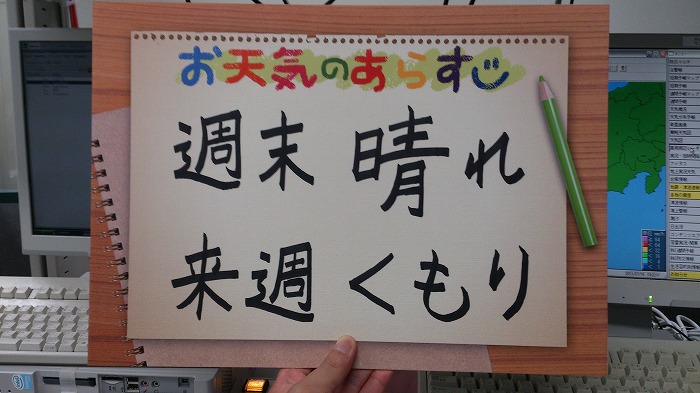 お天気のあらすじ
週末 晴れ
来週 くもり